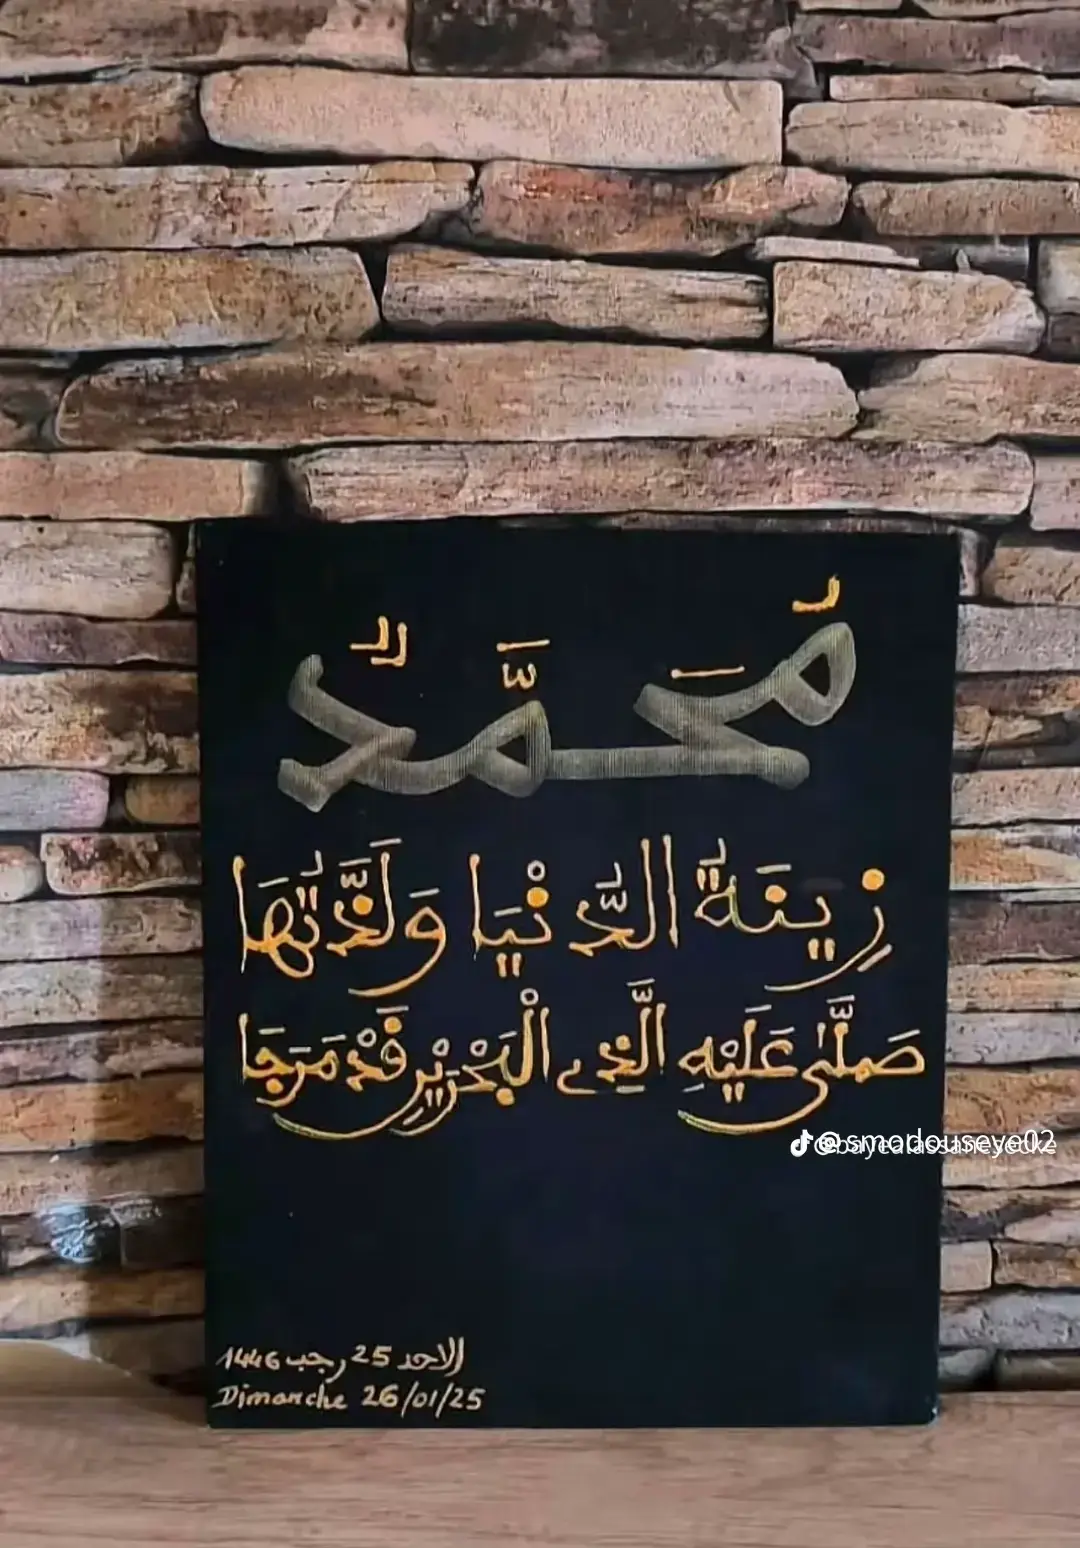 مُحَمَّدٌ
زِينَةُ الدُّنْيَا وَلَذَّتُهَا
صَلَّىٰ عَلَيْهِ الَّذِے الْبَحْرَيْنِ قَدْ مَرَجَا
@smodouseye02
الاحد 25 رجب 1446
Dimanche 26/01/25